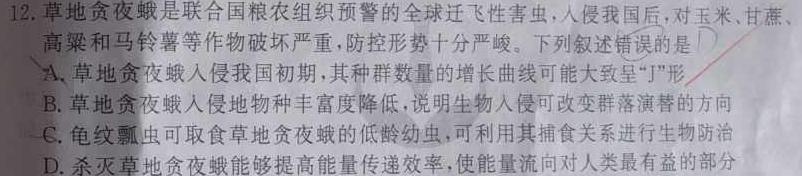 12. 草地贪夜蛾是联合国粮农组织预警的全球迁飞性害虫,入侵我国后,对玉米、甘蔗、
高粱和马铃薯等作物破坏严重,防控形势十分严峻。下列叙述错误的是
A. 草地贪夜蛾入侵我国初期,其种群数量的增长曲线可能大致呈“J”形
B. 草地贪夜蛾入侵地物种丰富度降低,说明生物入侵可改变群落演替的方向
C. 龟纹瓢虫可取食草地贪夜蛾的低龄幼虫,可利用其捕食关系进行生物防治
D. 杀灭草地贪夜蛾能够提高能量传递效率,使能量流向对人类最有益的部分